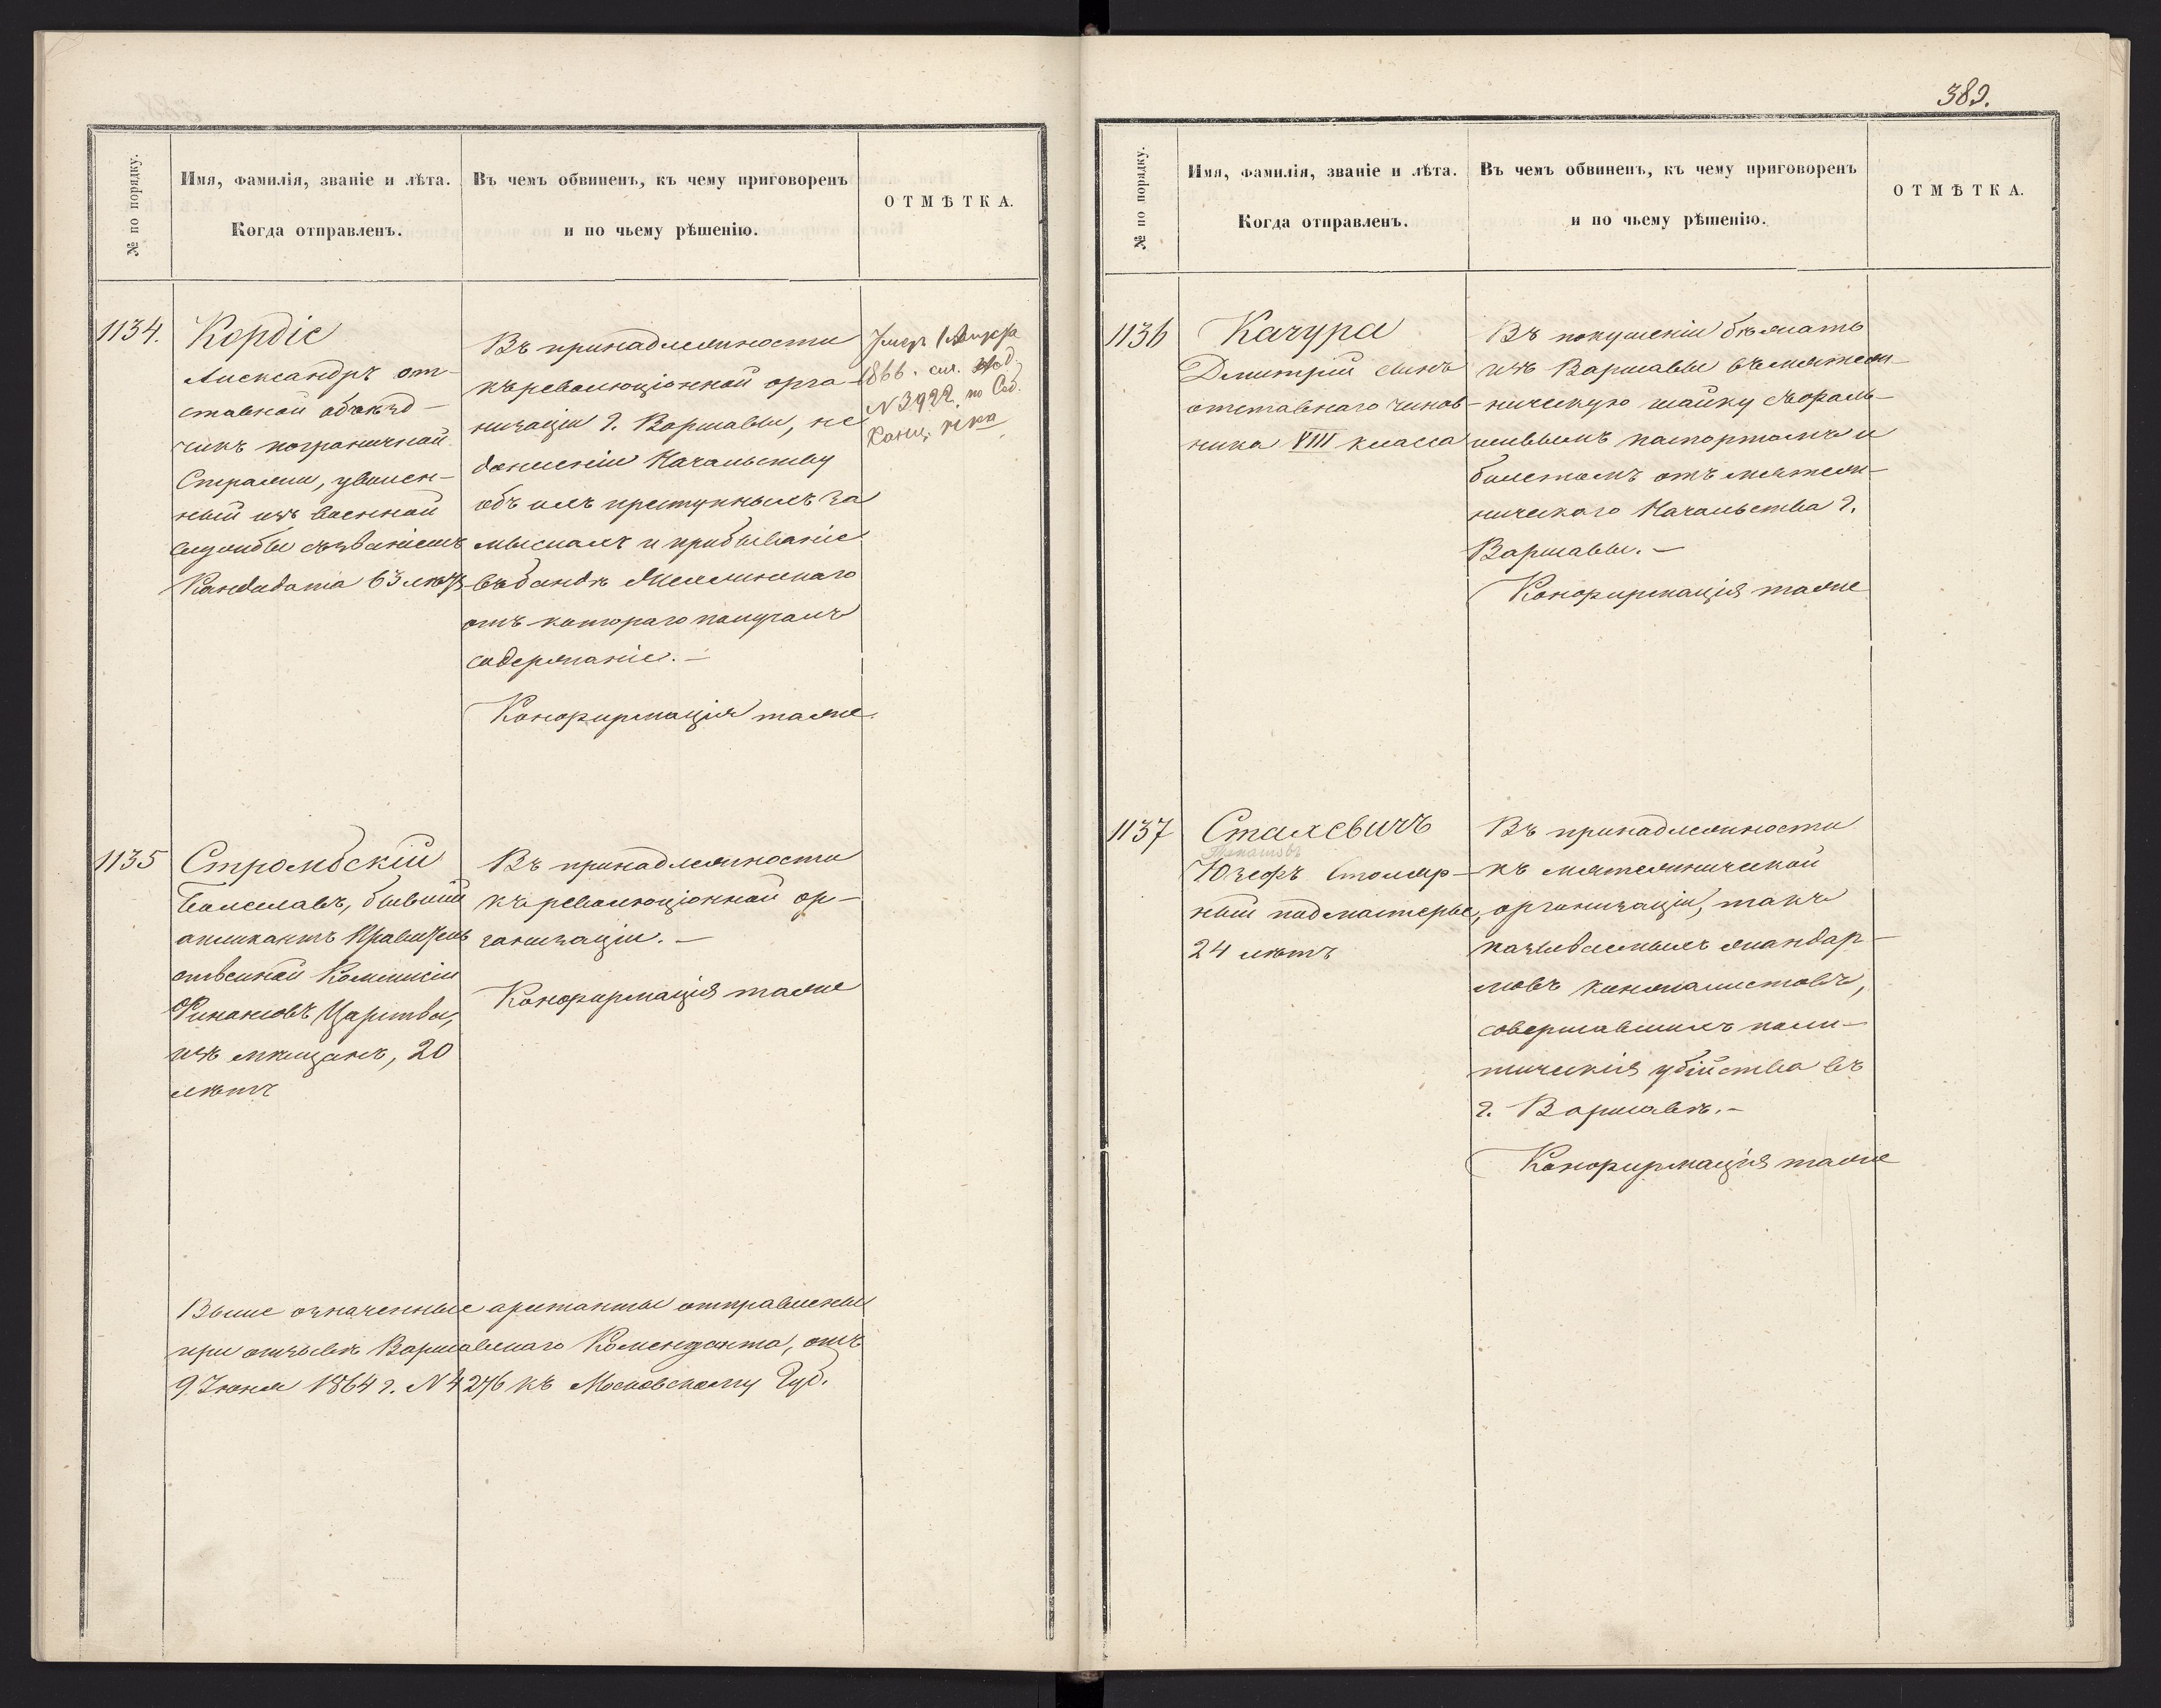 № по порядку.
Имя, фамилія, званіе и лѣта.
Когда отправленъ.
Въ чемъ обвиненъ, къ чему приговоренъ
и по чьему рѣшенію.
ОТМѢТКА.
1134.
Кордіе
Александръ от-
ставной объѣзд-
чикъ пограничной
Стражи, уволен-
ный изъ военной
службы съ званіемъ
Кандидата 63 лѣтъ
Въ принадлежности
къ революціонной орга-
низаціи г. Варшавы, не
донесеніи Начальству
объ ихъ преступныхъ за
мыслахъ и прибываніе
въ бандѣ
отъ котораго получалъ
содержаніе.—
Конфирмація таже
1866. см.
N 3922 по
1135
Стромбскій
Болеславъ, бывшій
апликантъ Правитель
ственной Коммисіи
Финансовъ Царства,
изъ мѣщанъ, 20
лѣтъ
Въ принадлежности
къ революціонной ор-
ганизаціи.—
Конфирмація таже
Выше означенные арестанты отправлены
при отзывѣ Варшавскаго Коменданта, отъ
9 Іюня 1864 г. N 4276 къ Московскому Губ.
389.
№ по порядку.
Имя, фамилія, званіе и лѣта.
Когда отправленъ.
Въ чемъ обвиненъ, къ чему приговоренъ
и по чьему рѣшенію.
ОТМѢТКА.
1136
Качура
Дмитрій сынъ
отставнаго чинов-
ника VIII класса
Въ покушеніи бѣжать
изъ Варшавы въ мятеж-
ническую шайку съ фаль-
шивымъ паспортомъ и
билетомъ отъ мятеж-
ническаго Начальства г.
Варшавы.—
Конфирмація таже
1137
Сталевичъ
Юзефъ Столяр-
ный подмастерье,
24 лѣтъ
Въ принадлежности
къ мятежнической
организаціи, такъ
называемыхъ жандар-
мовъ кинжалистовъ,
совершавшихъ поли-
тическія убійства въ
г. Варшавѣ.—
Конфирмація таже